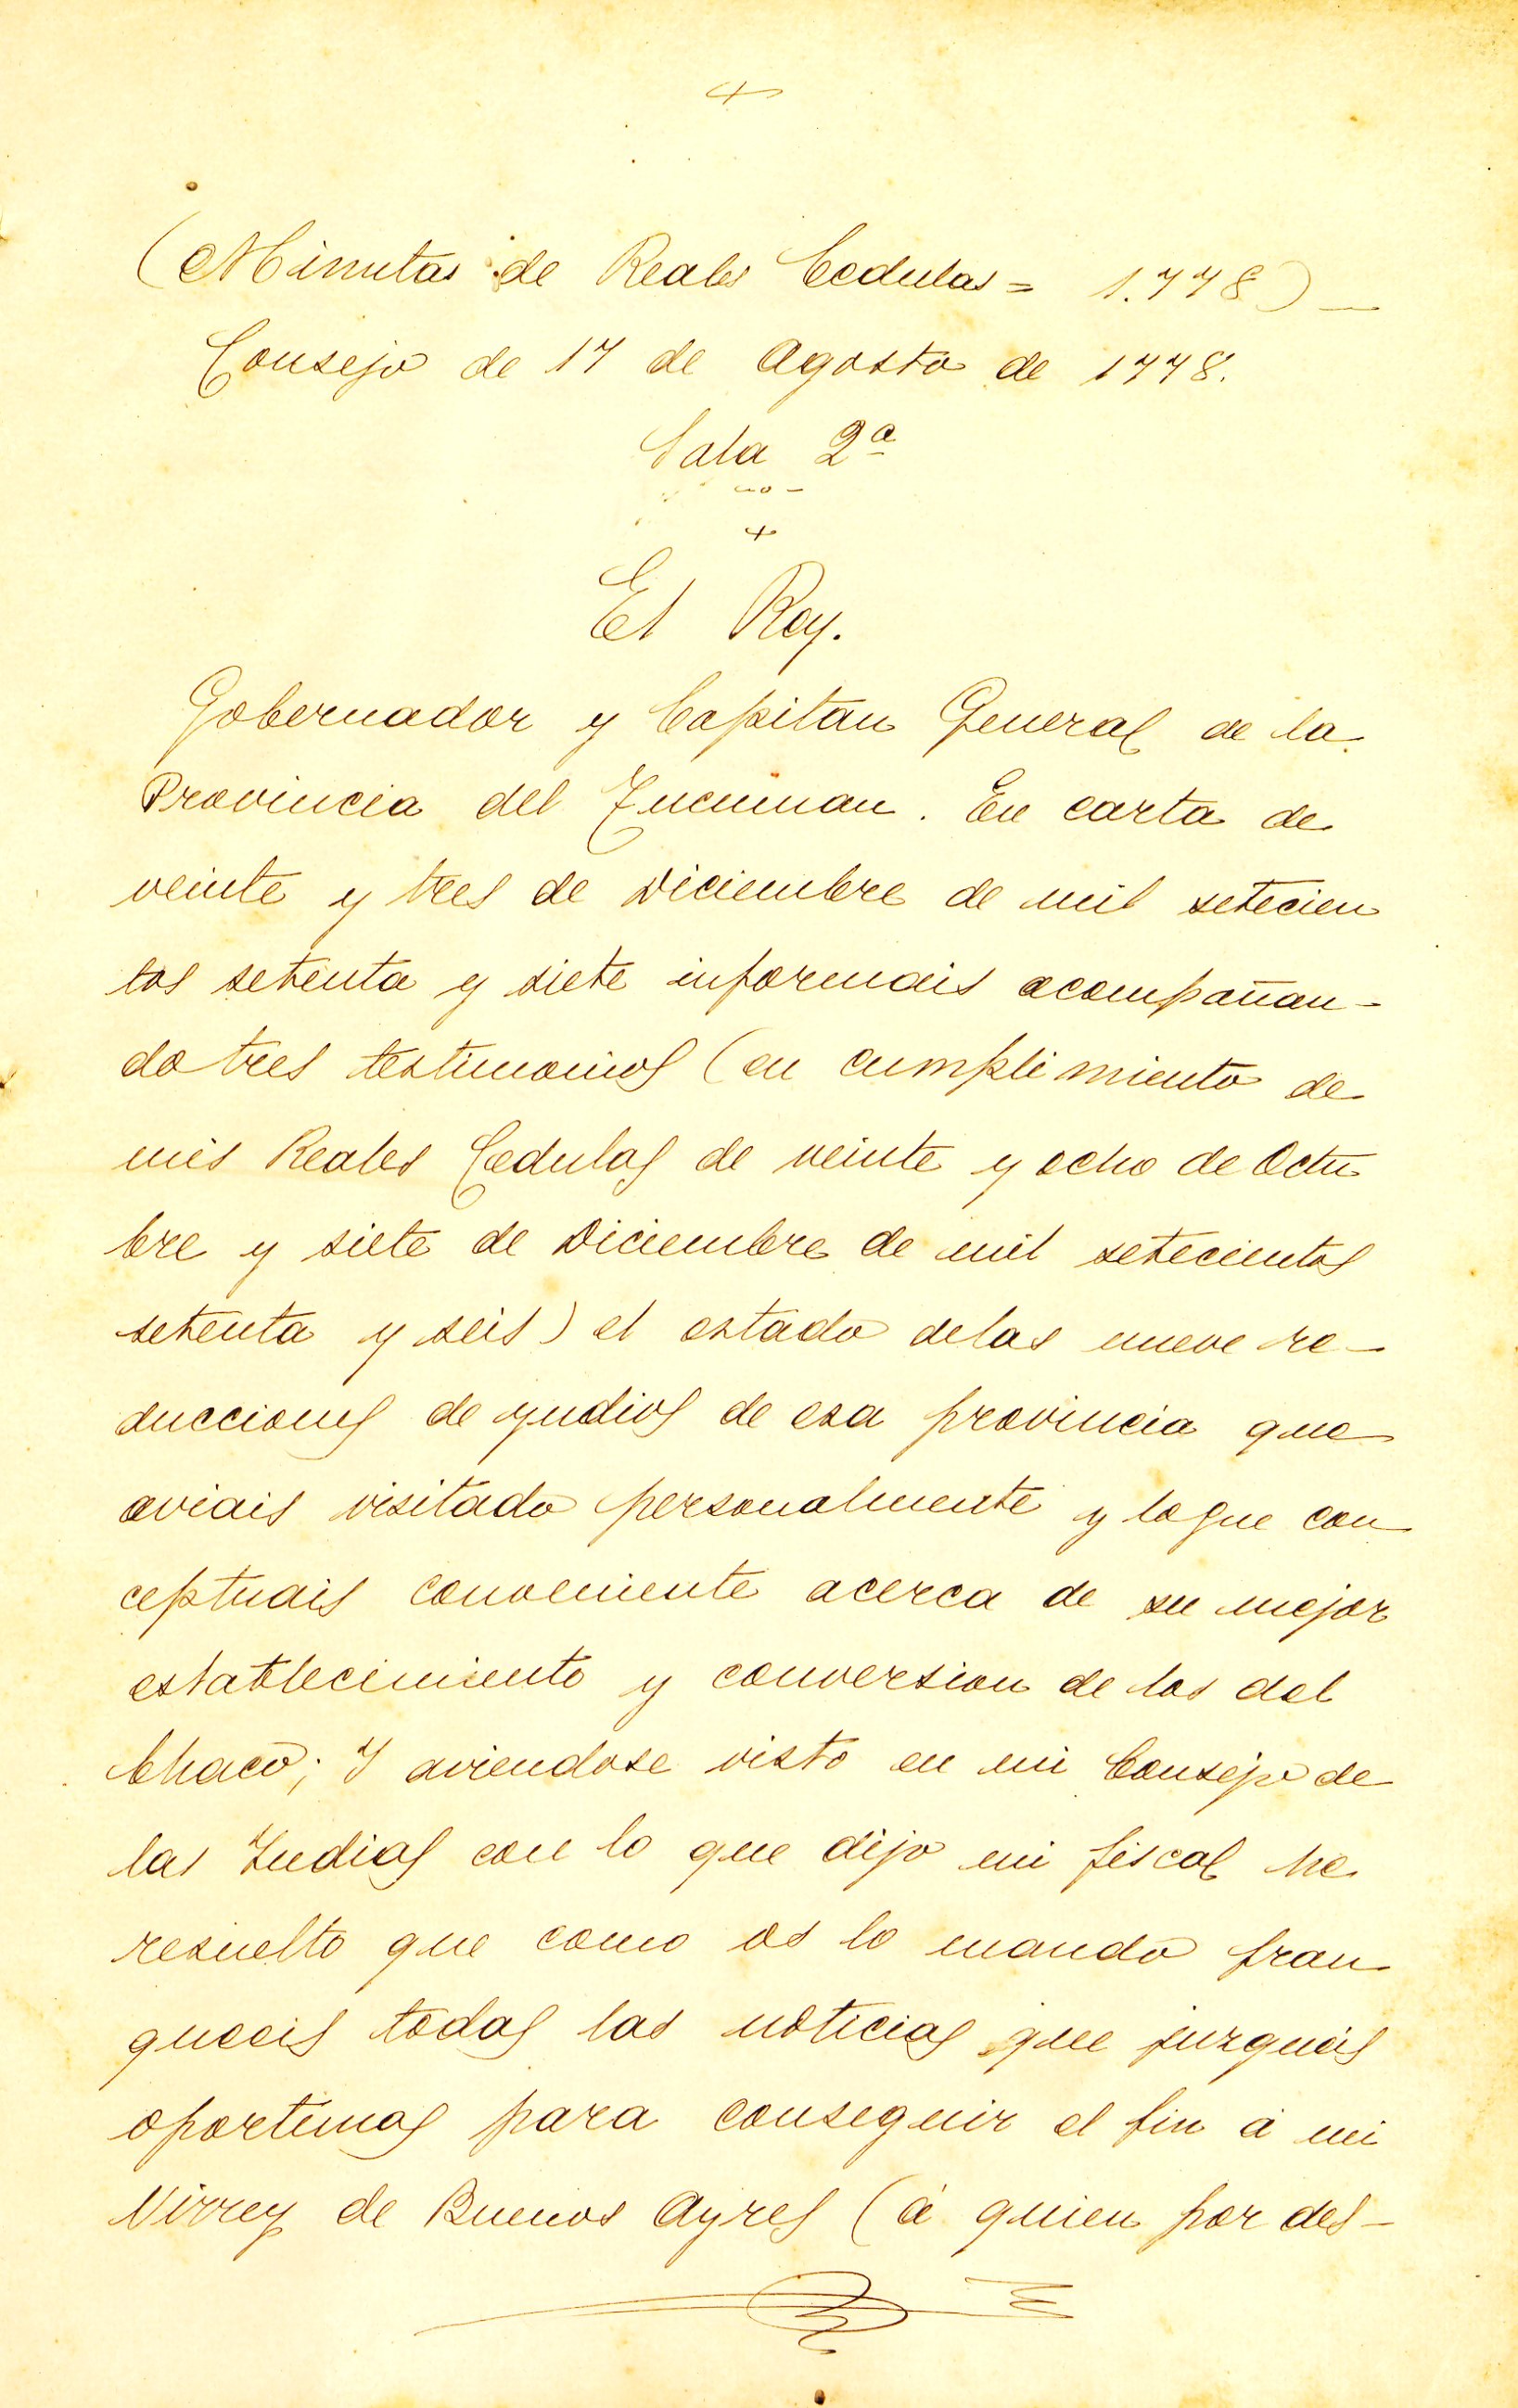 +
(Minutas de Reales Cedulas = 1.778) —
Consejo de 17 de Agosto de 1778.
Sala 2ª
+
El Rey.
Gobernador y Capitan General de la
Provincia del Tucuman. En carta de
veinte y tres de Diciembre de mil setecien
tos setenta y siete informais acompañan-
do tres testimonios (en cumplimiento de
mis Reales Cedulas de veinte y ocho de Octu
bre y siete de Diciembre de mil setecientos
setenta y seis) el estado delas nueve re-
ducciones de yndios de esa provincia que
aviais visitado personalmente y loque con
ceptuais conveniente acerca de su mejor
establecimiento y conversion de los del
Chaco; Y aviendose visto en mi Consejo de
las Indias con lo que dijo mi fiscal he
resuelto que como os lo mando fran
queeis todas las noticias que juzgueis
oportunas para conseguir el fin á mi
Virrey de Buenos Ayres (á quien por des-